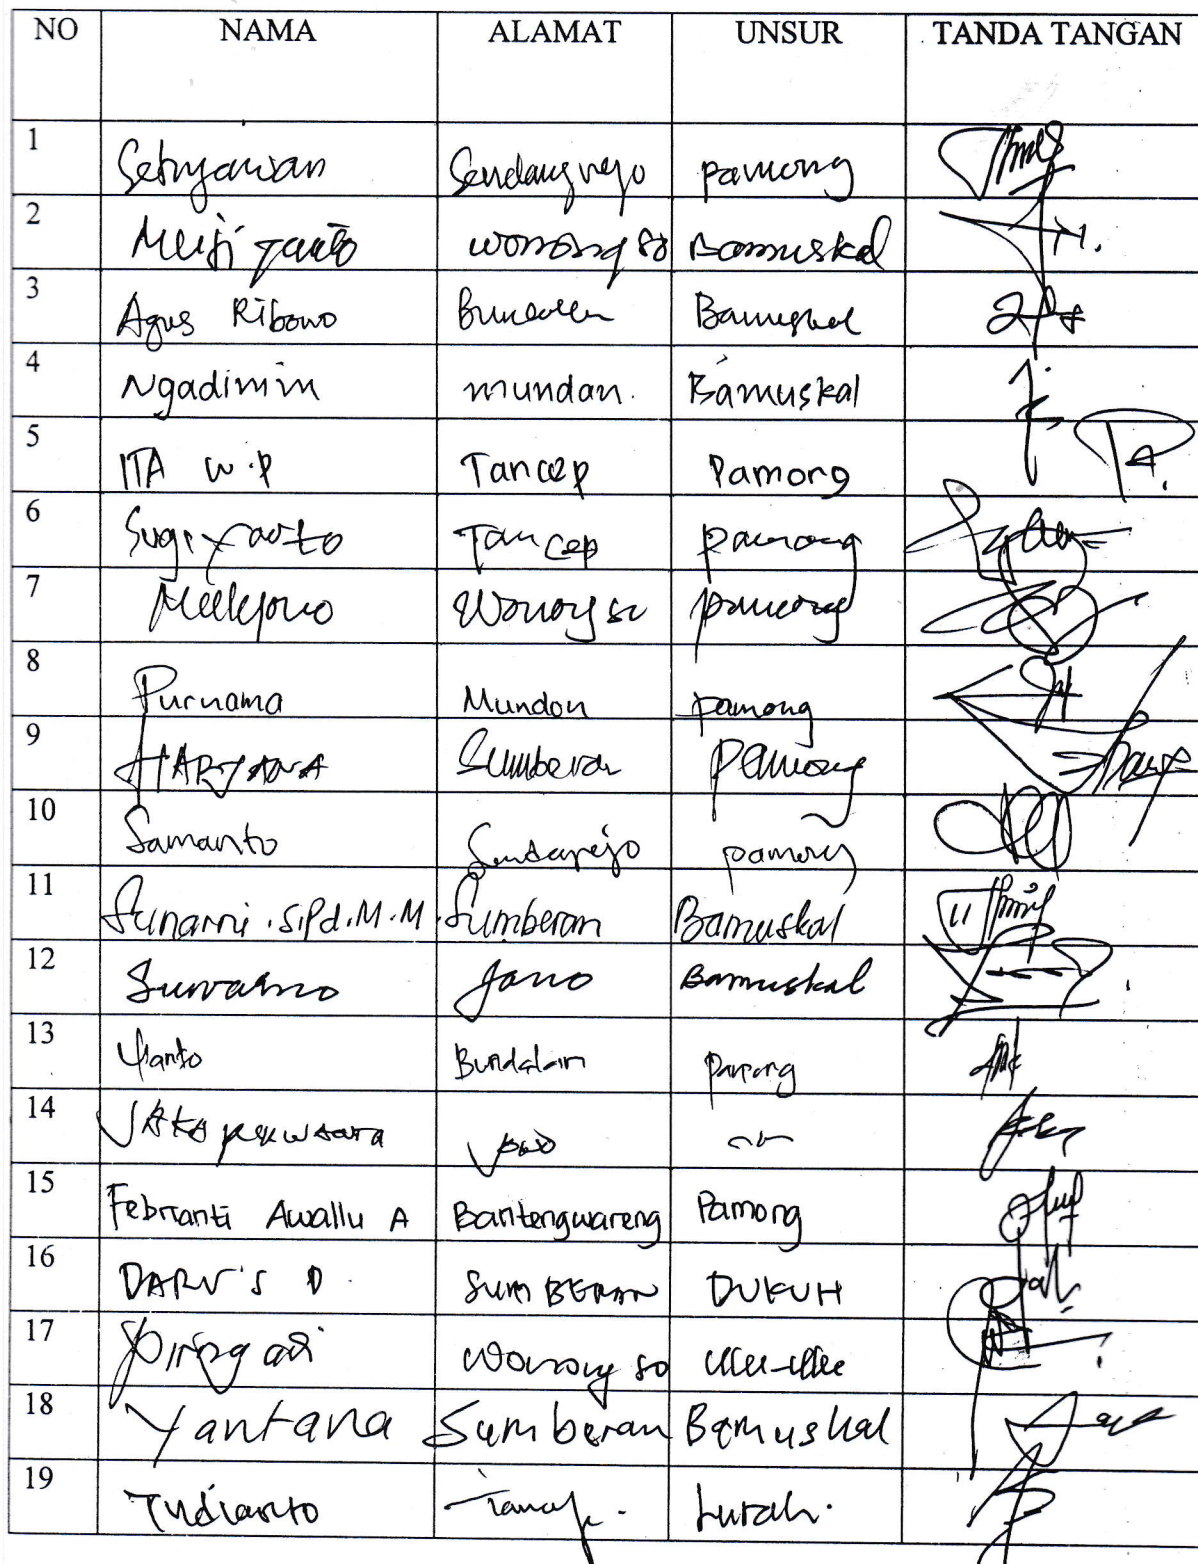 NO NAMA ALAMAT UNSUR TANDA TANGAN
1 Setiyawan Sendangrejo pamong
2 Meiji yanto wonongso Bamuskal
3 Agus Ribowo Bundelan Bamuskal
4 Ngadimin mundan. Bamuskal
5 ITA W.P Tancep Pamong
6 Sugiyanto Tancep pamong
7 Mulyono Wonongso pamong
8 Purnama Mundon pamong
9 HARYANA Sumberan Pamong
10 Samanto Sendangrejo pamong
11 Sunarni.S.Pd.M.M. Sumberan Bamuskal
12 Suwarno Jono Bamuskal
13 Yanto Bundelan pamong
14 JAKA
15 Febrianti Awallu A Bantengwareng Pamong
16 DARU'S D. SUMBERAN DUKUH
17 Piringadi Wonongso Ulu-ulu
18 Yantana Sumberan Bamuskal
19 Tudianto Tancep. Lurah.